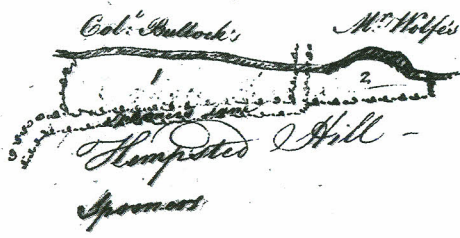 Col.ˡ Bullock's
Mʳ Wolfe's
1
2
Hempsted Hill
Spooners